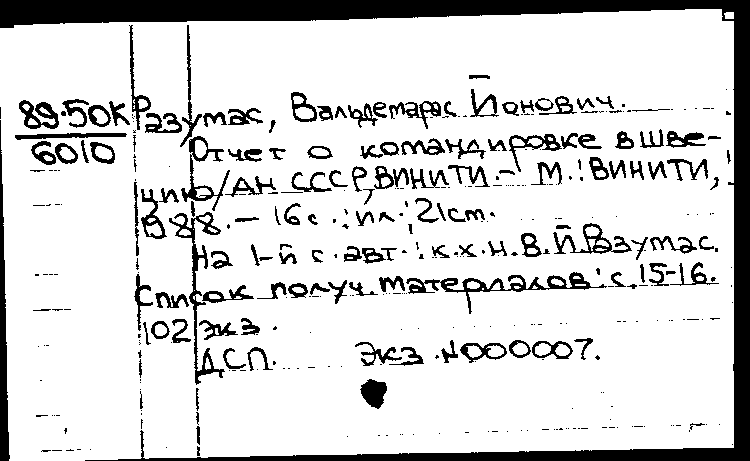 89-50К Разумас, Вальдемарас Йонович.
6010 Отчет о командировке в Шве-
цию/АН СССР, ВИНИТИ.- М.: ВИНИТИ,
1988.- 16с.: ил.; 21 cm.
На 1-й с. авт.: к.х.н. В.Й. Разумас.
Список получ. материалов: с. 15-16.
102 экз.
ДСП. Экз. N000007.